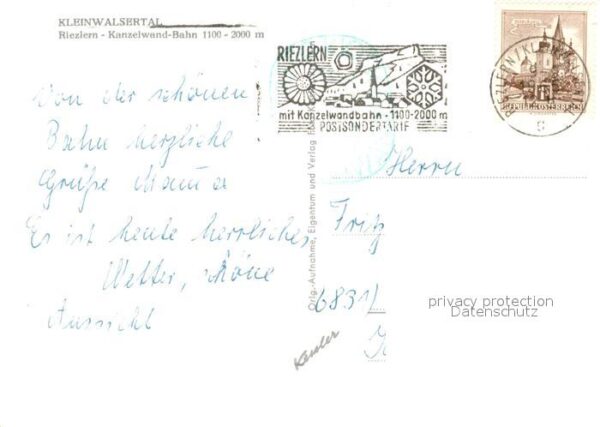 KLEINWALSERTAL
Riezlern - Kanzelwand-Bahn 1100 - 2000 m
Von der schönen
Bahn herzliche
Grüße Mama
Es ist heute herrliches
Wetter, schöne
Aussicht
RIEZLERN
mit Kanzelwandbahn - 1100-2000 m
POSTSONDERTARIF
REPUBLIK ÖSTERREICH
Orig.-Aufnahme, Eigentum und Verlag
Herrn
Fritz
6831
privacy protection
Datenschutz